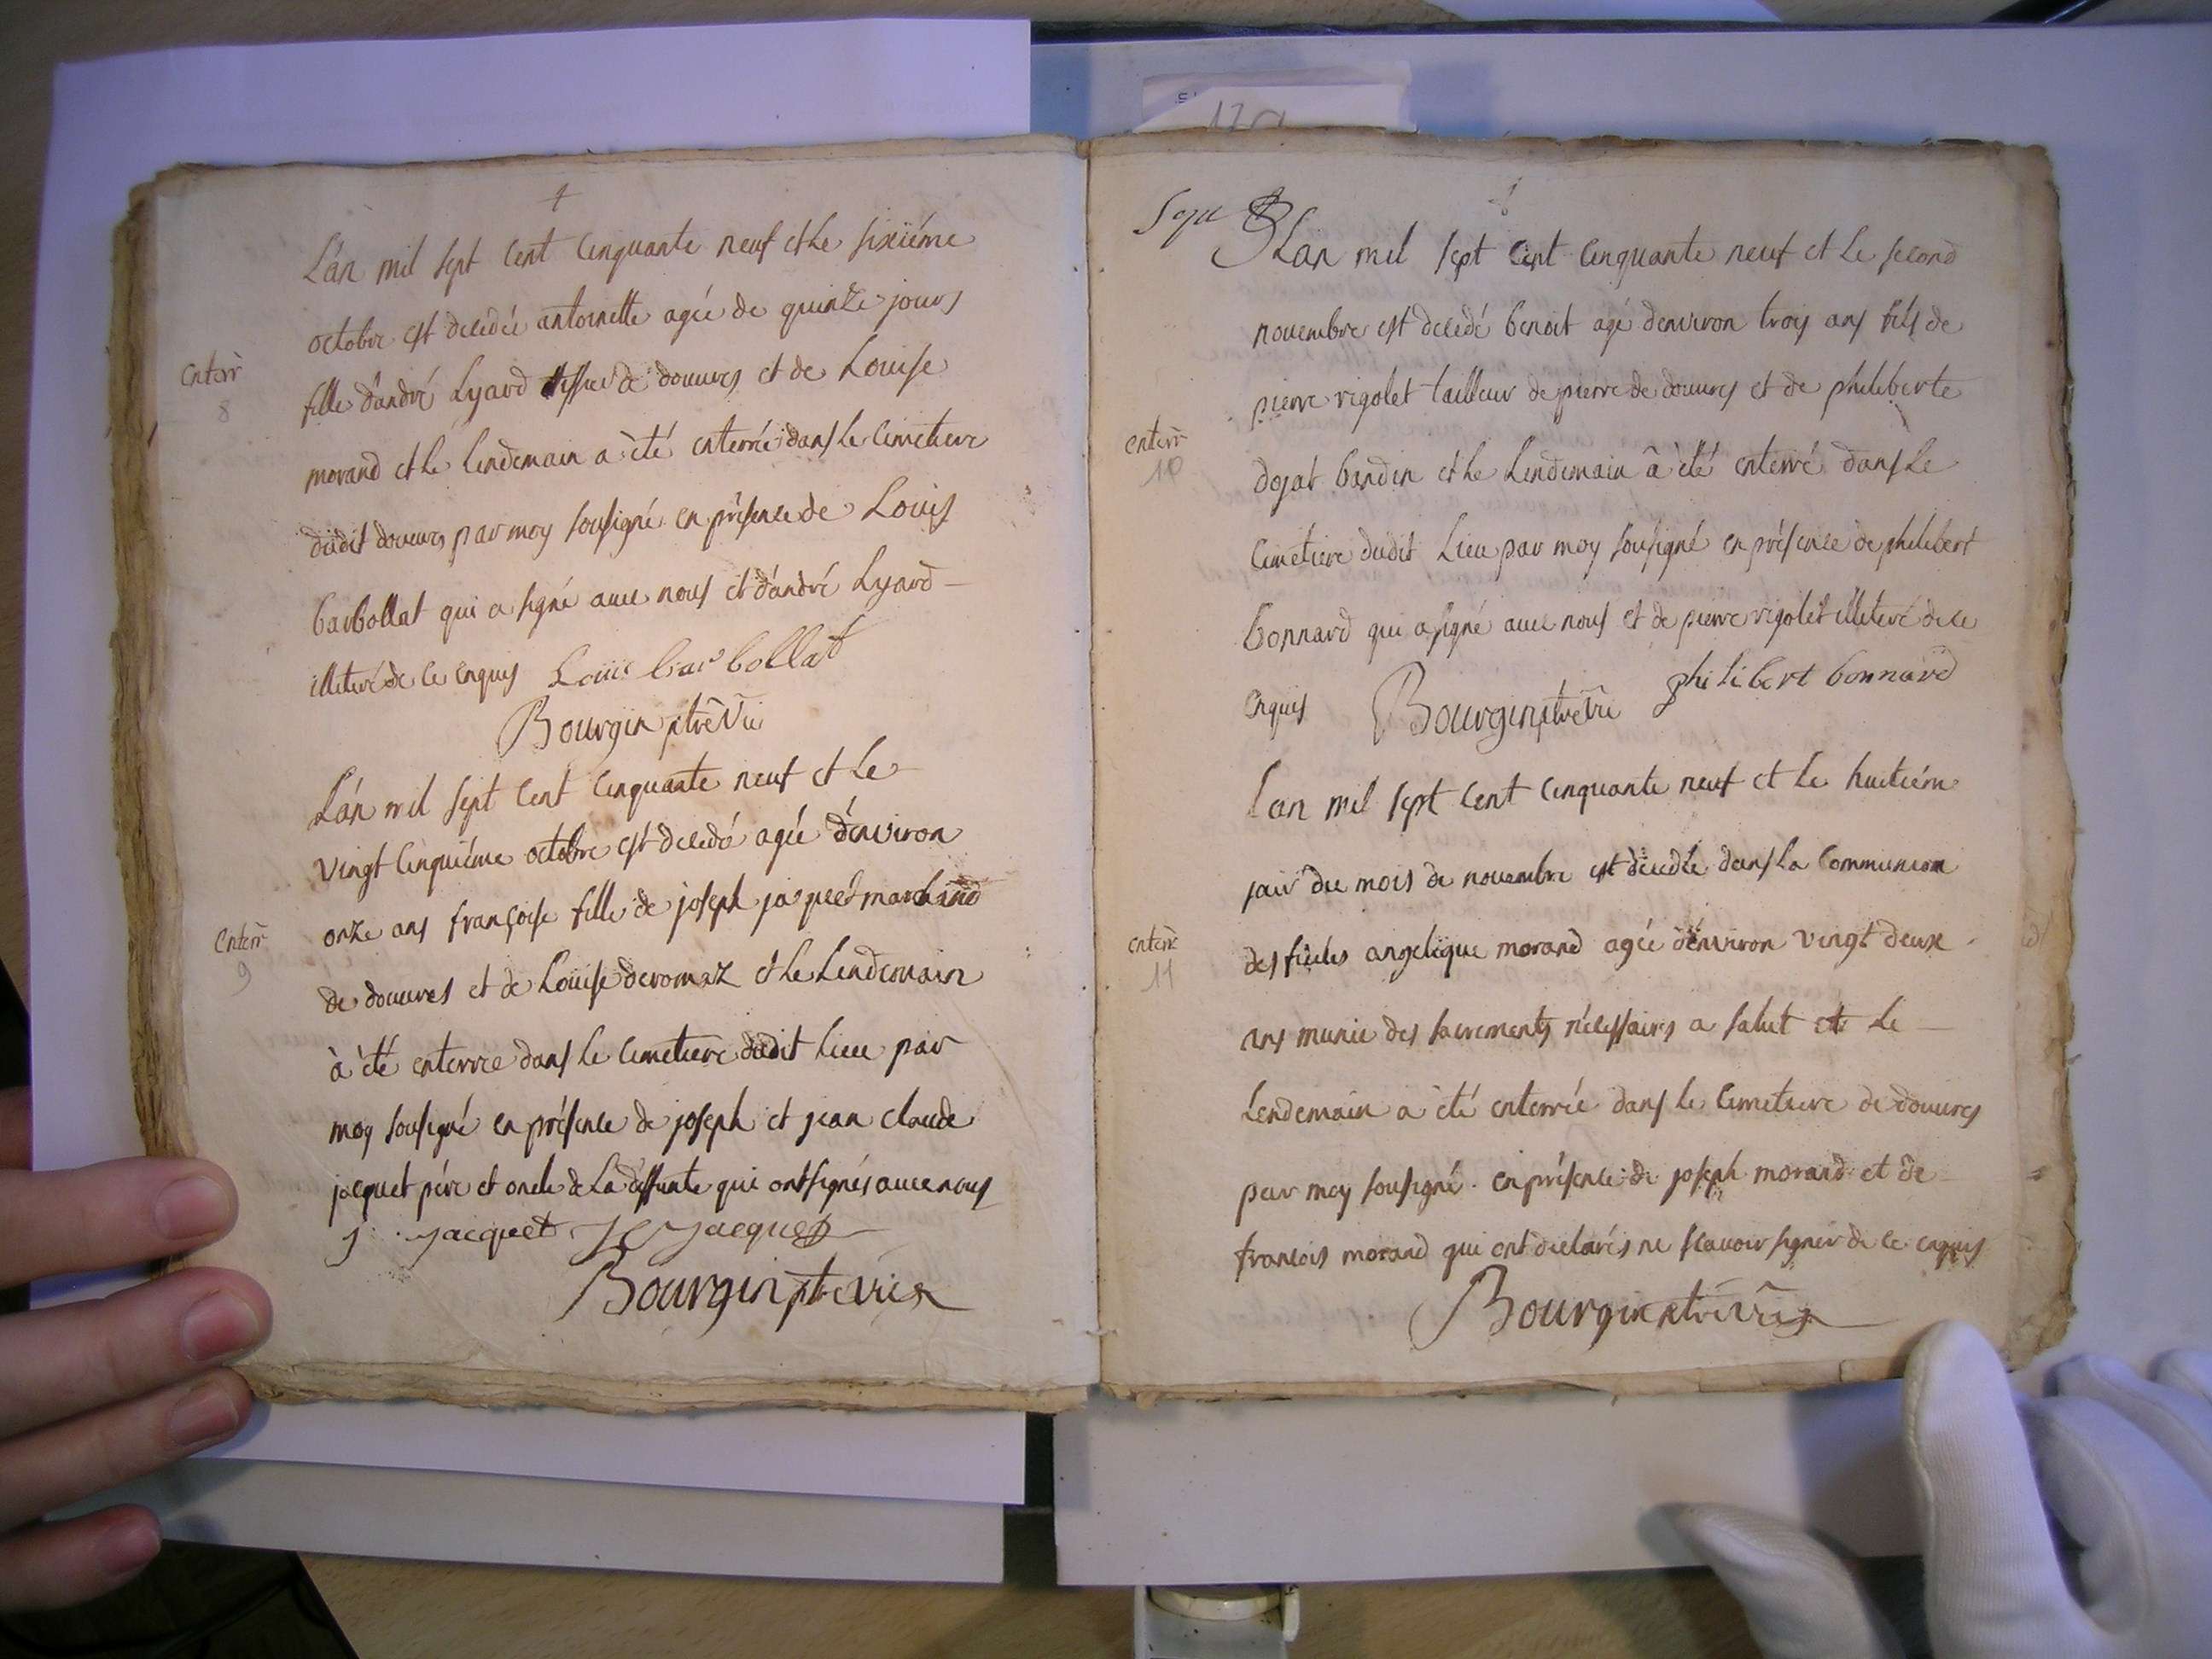 4
L'an mil sept cent cinquante neuf et le sixiéme
octobre est decedée antoinette agée de quinze jours
fille d'andré Lyard tissier de douvres et de Louise
enterr
8
morand et le lendemain a été enterrée dans le cimetiere
dudit douvres par moy sousigné en présence de Louis
barbollat qui a signé avec nous et d'andré Lyard
illeteré de ce enquis Louis barbollat
Bourgin ptre Vic
L'an mil sept cent cinquante neuf et le
vingt cinquiéme octobre est decedé agée d'environ
onze ans françoise fille de joseph jaquet marchand
enterr
9
de douvres et de Louise deromaz et le lendemain
à été enterree dans le cimetiere dudit lieu par
moy sousigné en présence de joseph et jean claude
jacquet pére et oncle de la deffunte qui ont signés avec nous
j. jacquet JC jacquet
Bourgin ptre vic
L'an mil sept cent cinquante neuf et le second
novembre est decedé benoit agé d'environ trois ans fils de
pierre rigolet tailleur de pierre de douvres et de philiberte
enterr
10
dojat bandin et le lendemain a été enterré dans le
cimetiere dudit lieu par moy sousigné en présence de philibert
bonnard qui a signé avec nous et de pierre rigolet illeteré de ce
enquis Bourgin ptre Vic philibert bonnard
l'an mil sept cent cinquante neuf et le huitiéme
jour du mois de novembre est decedée dans la communion
enterr
11
des fideles angelique morand agée d'environ vingt deux
ans munie des sacrements nécessaires a salut et le
lendemain a été enterrée dans le cimetiere de douvres
par moy sousigné en présence de joseph morand et de
francois morand qui ont declarés ne scavoir signer de ce enquis
Bourgin ptre Vic